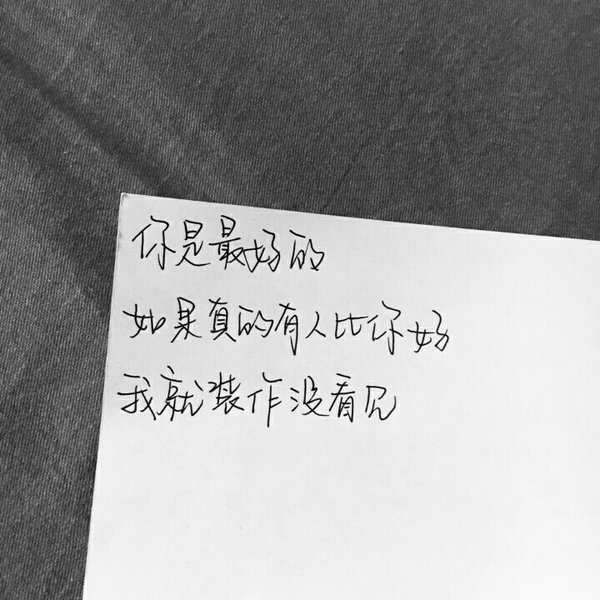 你是最好的
如果真的有人比你好
我就装作没看见